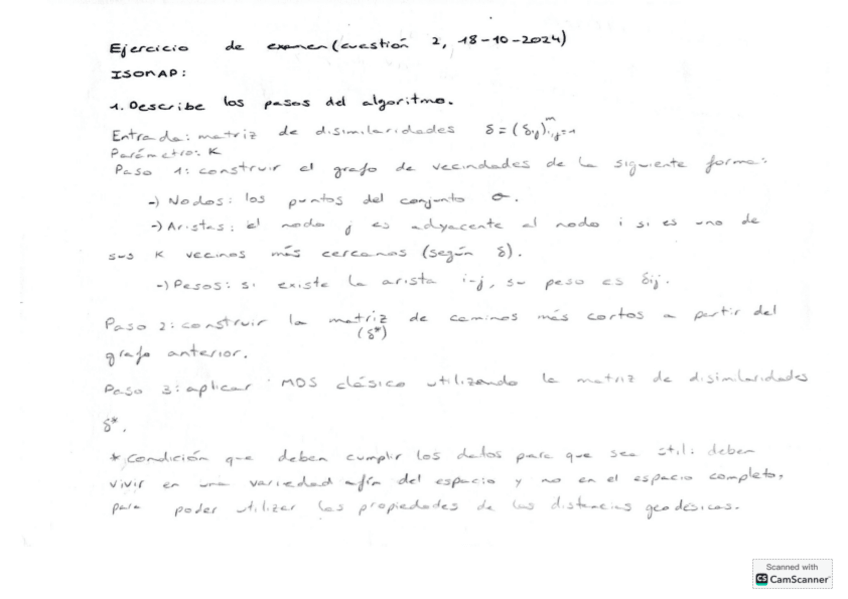 Ejercicio de examen (cuestión 2, 18-10-2024)
ISOMAP:
1. Describe los pasos del algoritmo.
Entrada: matriz de disimilaridades δ = (δij)ᵐi,j=1
Parámetro: K
Paso 1: construir el grafo de vecindades de la siguiente forma:
-) Nodos: los puntos del conjunto σ.
-) Aristas: el nodo j es adyacente al nodo i si es uno de
sus K vecinos más cercanos (según δ).
-) Pesos: si existe la arista i-j, su peso es δij.
Paso 2: construir la matriz de caminos más cortos a partir del
(δ*)
grafo anterior.
Paso 3: aplicar MDS clásico utilizando la matriz de disimilaridades
δ*.
* Condición que deben cumplir los datos para que sea útil: deben
vivir en una variedad afín del espacio y no en el espacio completo,
para poder utilizar las propiedades de las distancias geodésicas.
Scanned with
CS CamScanner